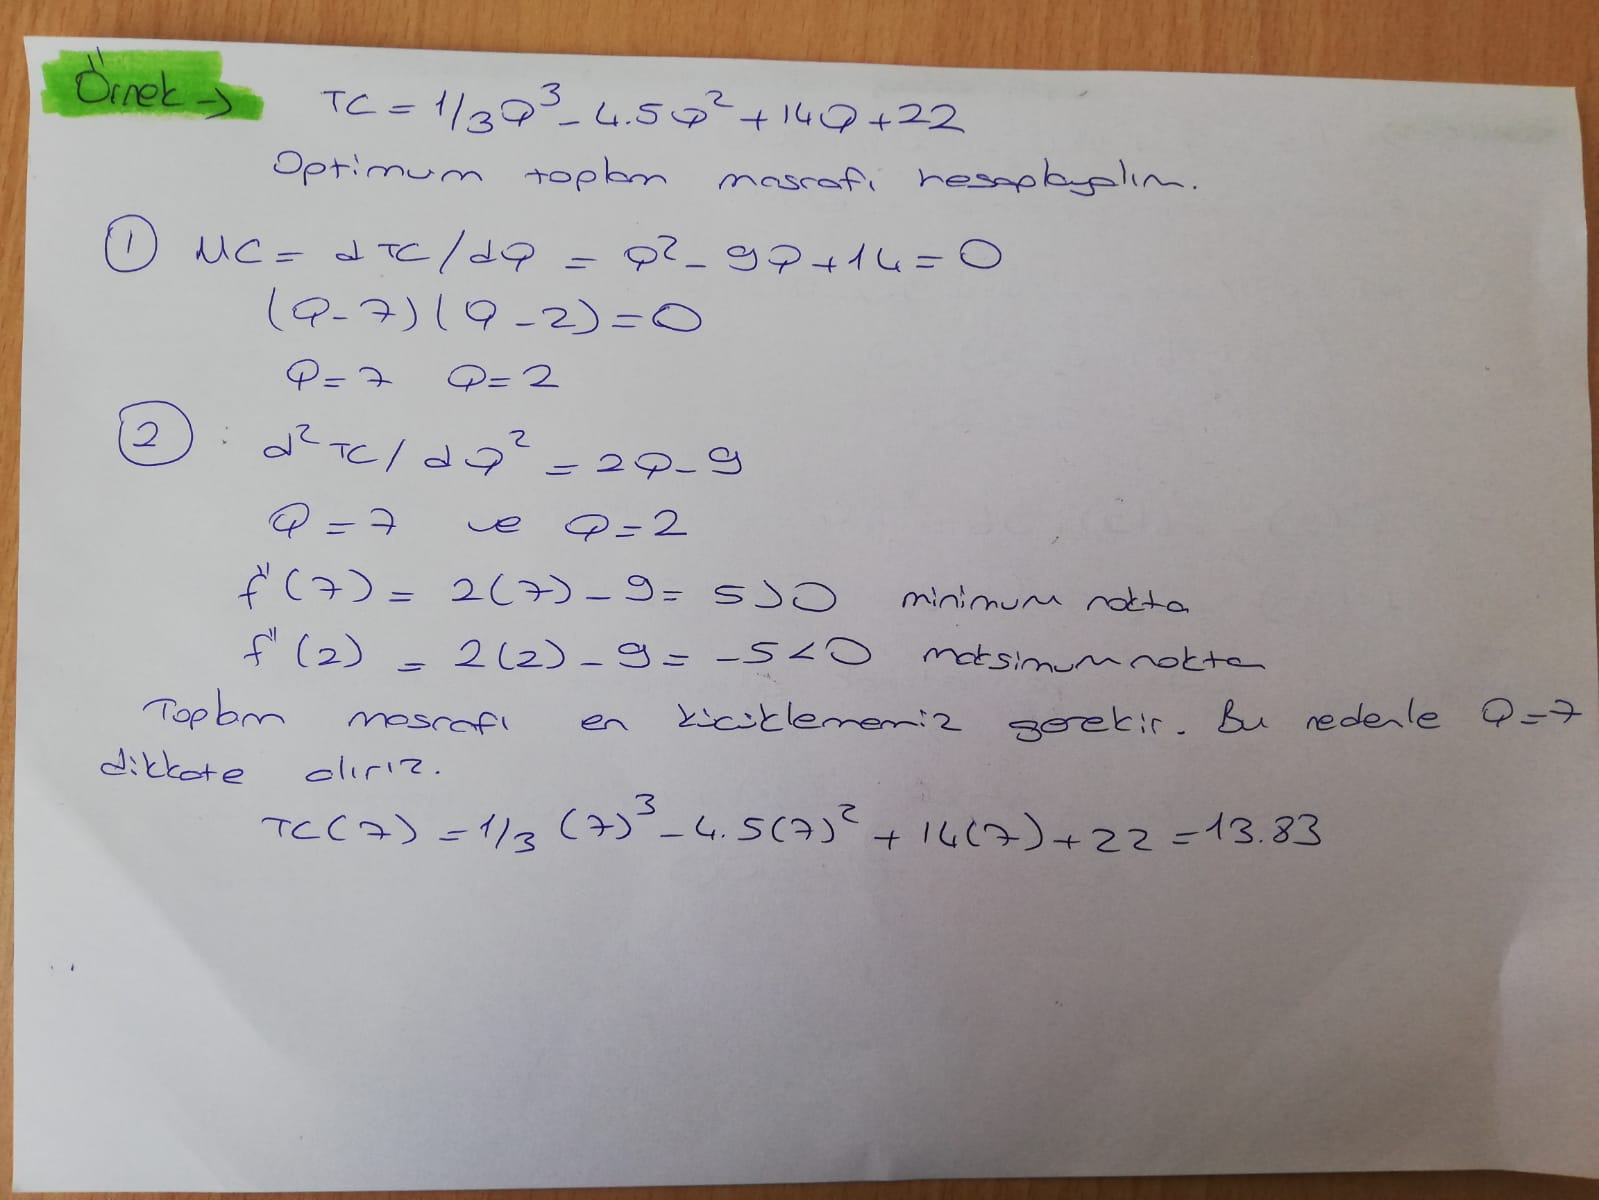 Örnek →
TC = 1/3Q³ - 4.5Q² + 14Q + 22
Optimum toplam masrafı hesaplayalım.
① MC = dTC/dQ = Q² - 9Q + 14 = 0
(Q - 7)(Q - 2) = 0
Q = 7 Q = 2
② : d²TC/dQ² = 2Q - 9
Q = 7 ve Q = 2
f"(7) = 2(7) - 9 = 5 > 0 minimum nokta
f"(2) = 2(2) - 9 = -5 < 0 maksimum nokta
Toplam masrafı en kücüklememiz gerekir. Bu nedenle Q = 7
dikkate alırız.
TC(7) = 1/3 (7)³ - 4.5(7)² + 14(7) + 22 = 13.83